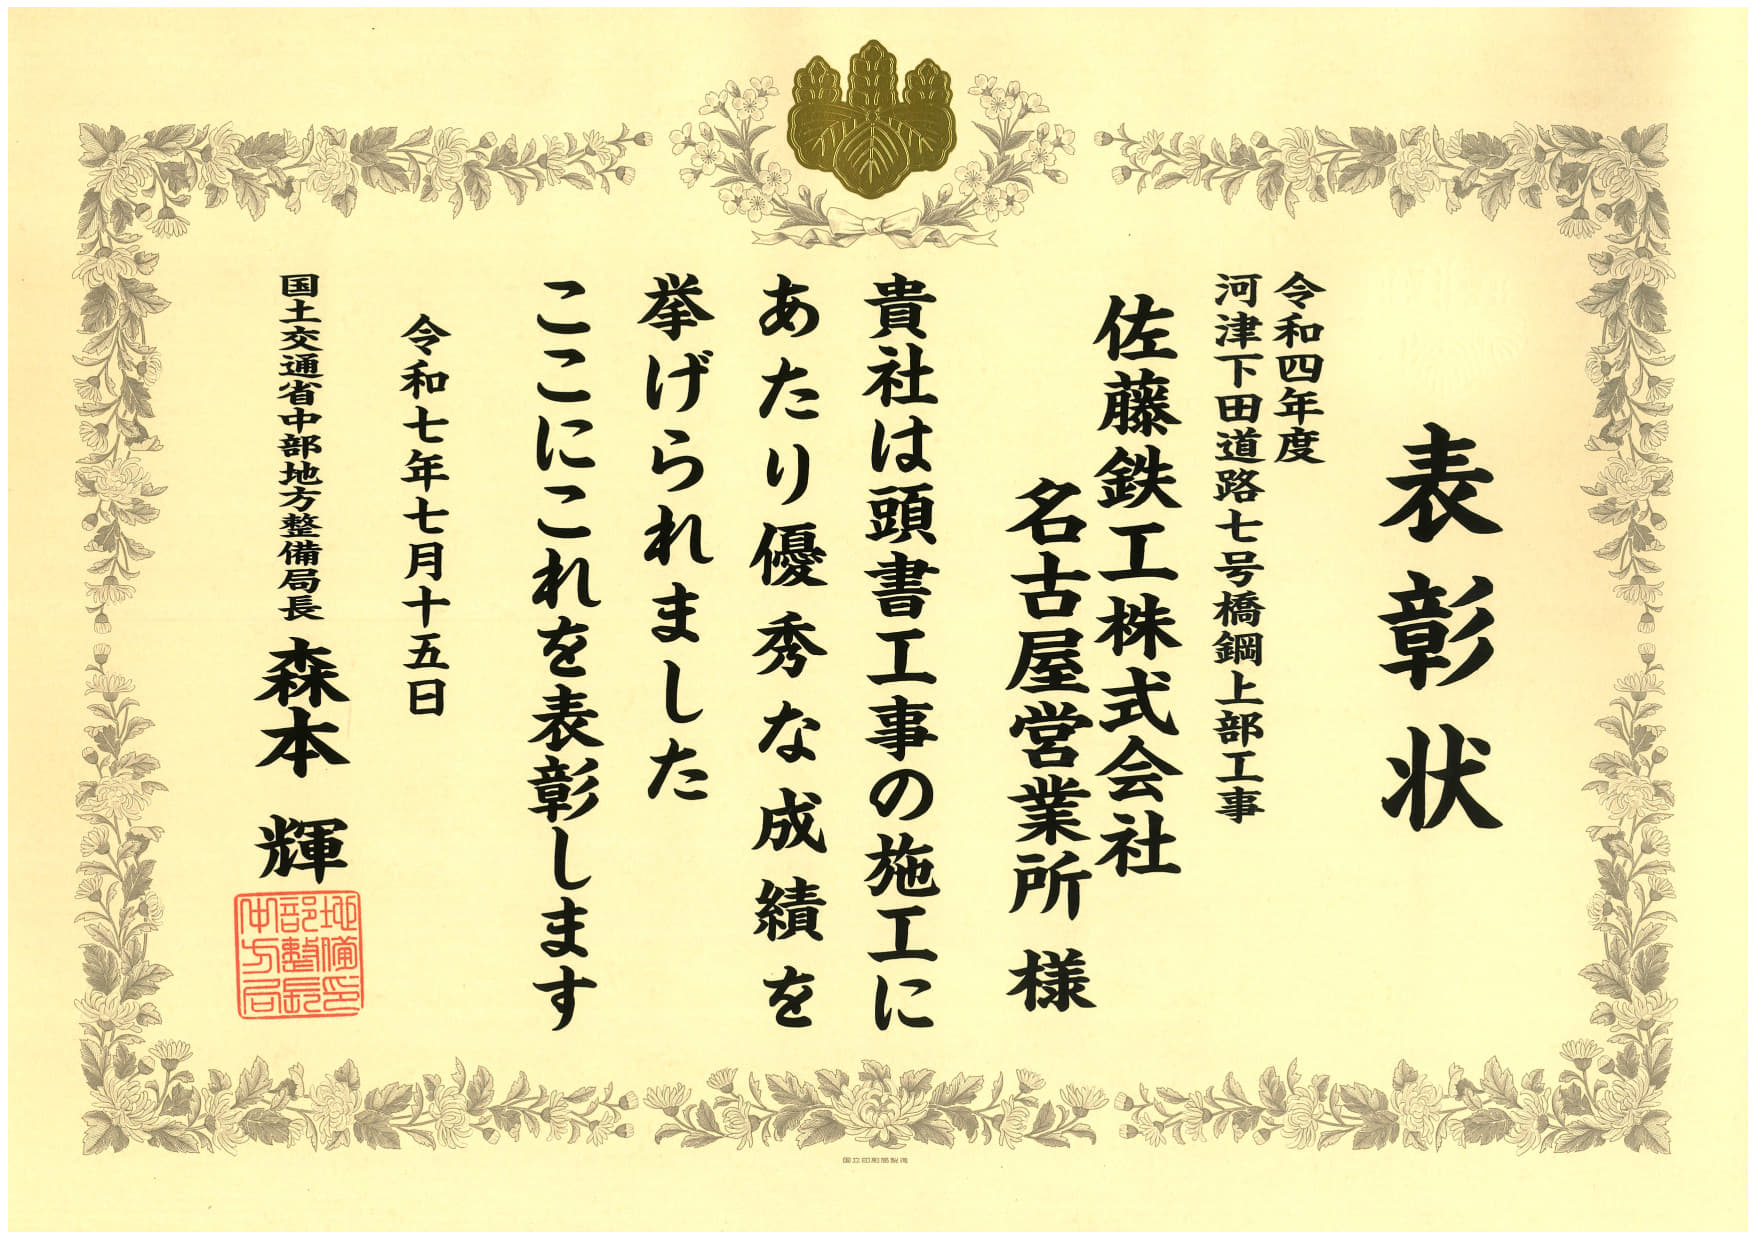 表彰状
令和四年度
河津下田道路七号橋鋼上部工事
佐藤鉄工株式会社
名古屋営業所 様
貴社は頭書工事の施工に
あたり優秀な成績を
挙げられました
ここにこれを表彰します
令和七年七月十五日
国土交通省中部地方整備局長 森本 輝
地備印
部整長
中方局
国立印刷局製造